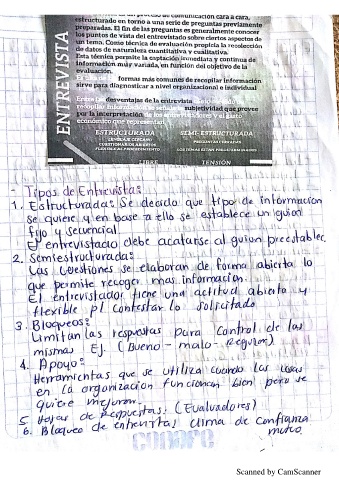 comunicación cara a cara,
estructurado en torno a una serie de preguntas previamente
preparadas. El fin de las preguntas es generalmente conocer
los puntos de vista del entrevistado sobre ciertos aspectos de
un tema. Como técnica de evaluación propicia la recolección
de datos de naturaleza cuantitativa y cualitativa.
Esta técnica permite la captación inmediata y continua de
información muy variada, en función del objetivo de la
evaluación.
ENTREVISTA
formas más comunes de recopilar información
sirve para diagnosticar a nivel organizacional e individual
desventajas de la entrevista
subjetividad que provee
por la interpretación y el gasto
económico que representan
ESTRUCTURADA
SEMI-ESTRUCTURADA
LIBRE
TENSIÓN
- Tipos de Entrevistas
1. Estructurada: Se decide que tipo de información
se quiere y en base a ello se establece un guion
fijo y secuencial.
El entrevistado debe acatarse al guion preestablec.
2. Semiestructurada:
Las Cuestiones se elaboran de forma abierta lo
que permite recoger mas información.
El entrevistador tiene una actitud abierta y
flexible p/ contestar lo solicitado
3. Bloqueos:
Limitan las respuestas para Control de las
mismas Ej. (Bueno - malo - Regular)
4. Apoyo:
Herramientas que se utiliza cuando las cosas
en la organización funcionan bien pero se
quiere mejorar.
5. Hojas de Respuestas: (Evaluadores)
6. Bloqueo de entrevista/ clima de confianza
mutuo
Scanned by CamScanner